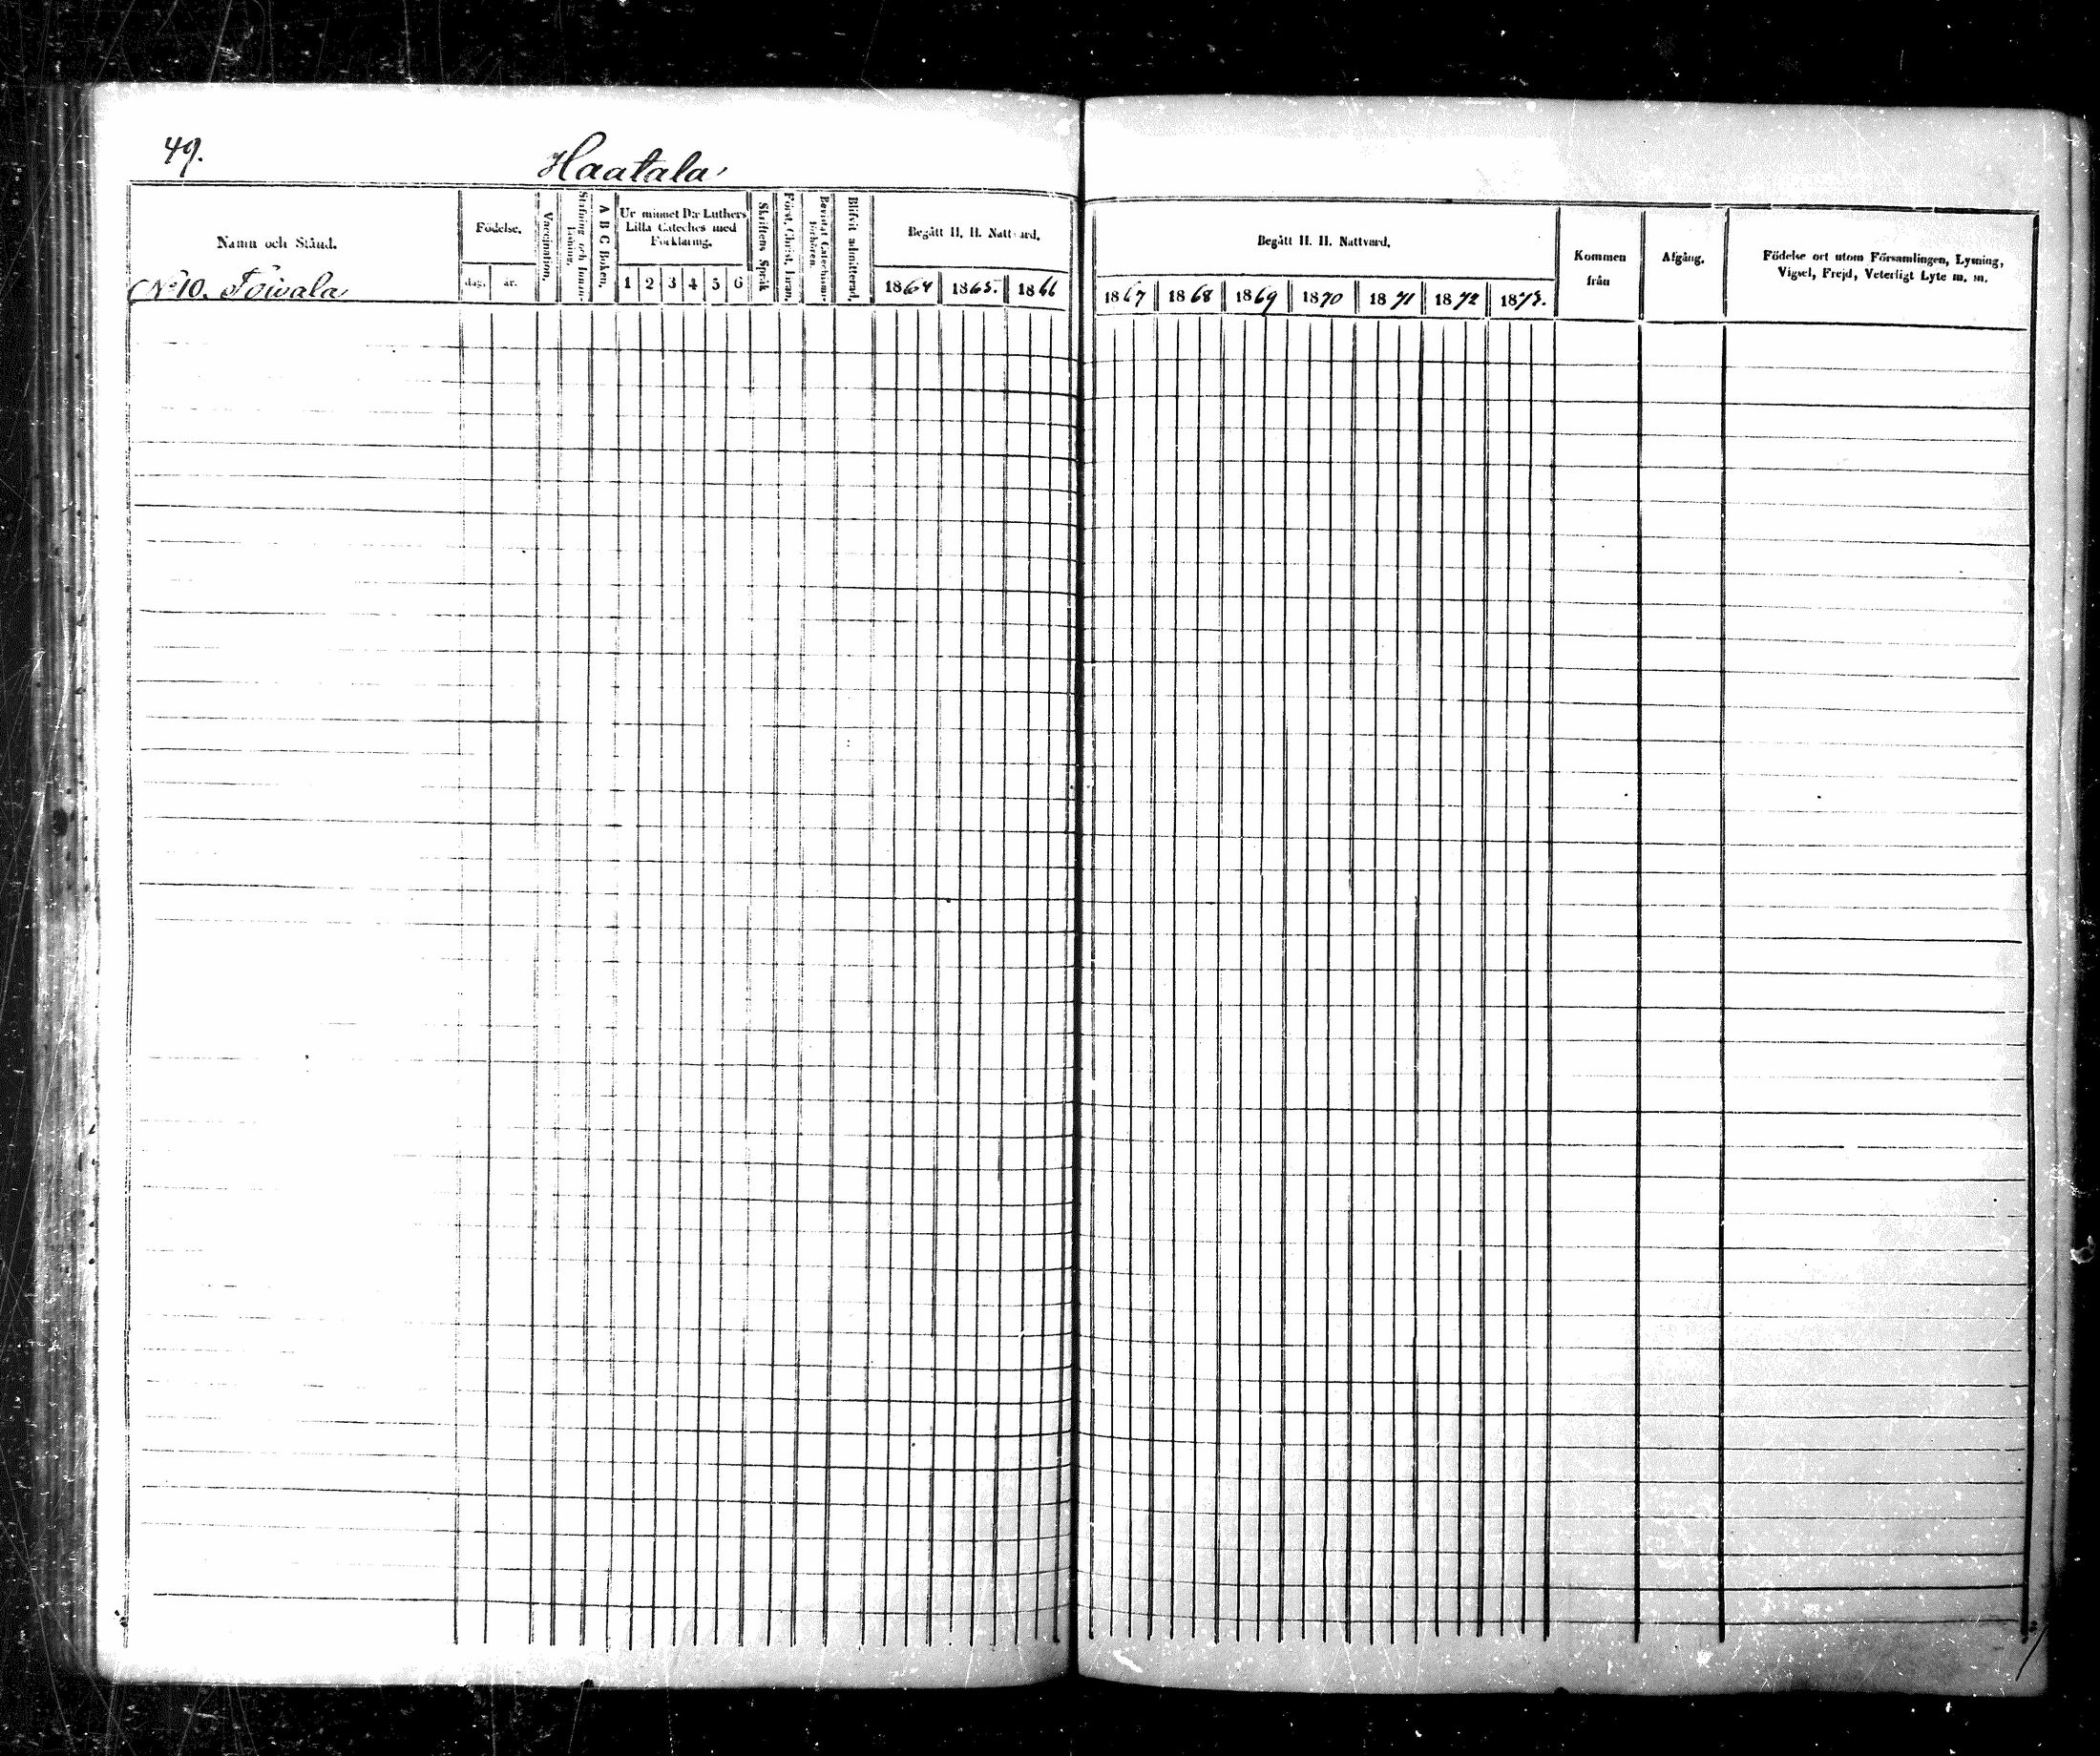 49.
Haatala
Namn och Stånd.
No 10. Toivala
Födelse.
dag. år.
Vaccination.
Stafning och Innan-
läsning.
A B C Boken.
Ur minnet D:r Luthers
Lilla Cateches med
Förklaring.
1 2 3 4 5 6
Skriftens Språk
Först. Christ. Läran.
Bevistat Catechismi-
förhören.
Blifvit admitterad.
Begått H. H. Nattvard.
1864 1865. 1866
Begått H. H. Nattvard.
1867 1868 1869 1870 1871 1872 1873.
Kommen
från
Afgång.
Födelse ort utom Församlingen, Lysning,
Vigsel, Frejd, Veterligt Lyte m. m.